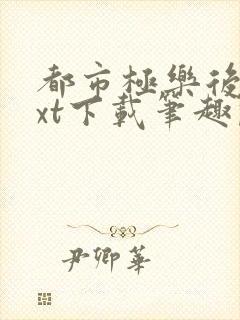 都市極樂後
xt下載筆趣
尹卿華